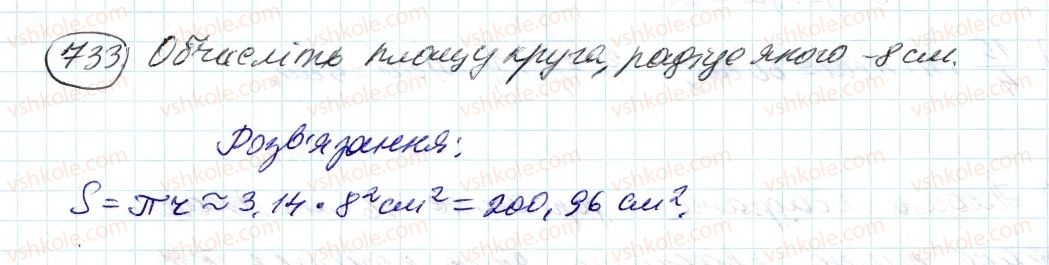 733 Обчисліть площу круга, радіус якого - 8 см.
Розв'язання:
S = πr ≈ 3,14 • 8² см² = 200,96 см².